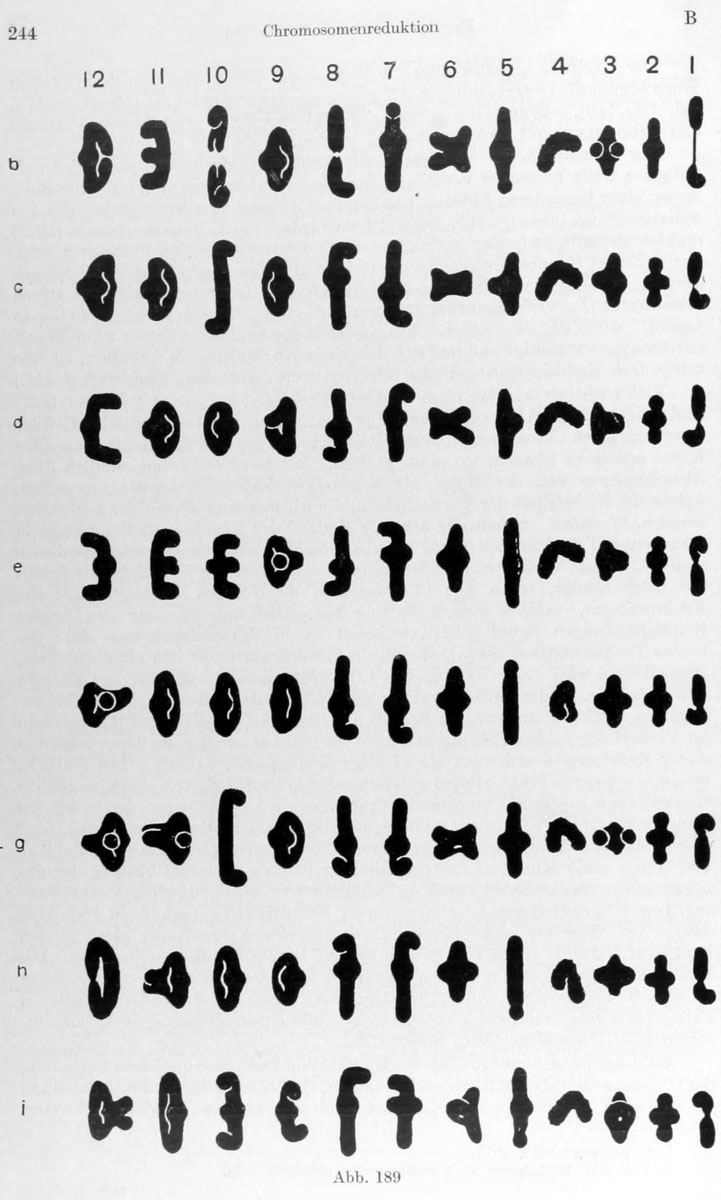 244
Chromosomenreduktion
B
12 11 10 9 8 7 6 5 4 3 2 1
b
c
d
e
g
h
i
Abb. 189